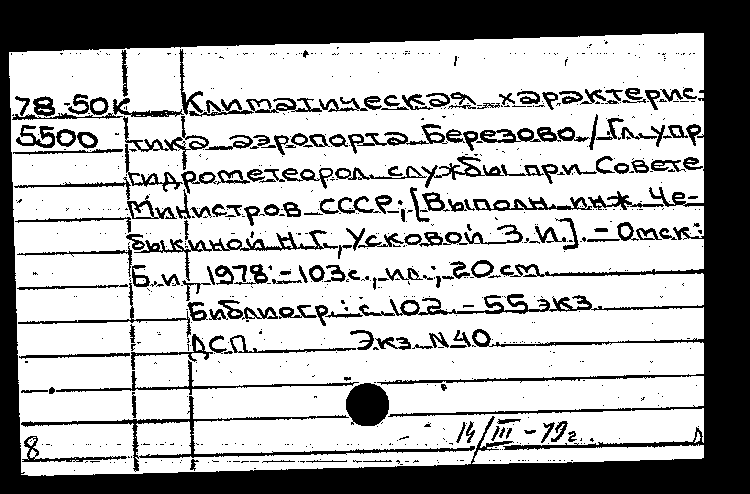 78-50к Климатическая характерис-
5500 тика аэропорта Березово / Гл. упр
гидрометеорол. службы при Совете
Министров СССР; [Выполн. инж. Че-
быкиной Н.Г., Усковой З.И.]. - Омск:
Б.и., 1978. - 103 с., ил.; 20 см.
Библиогр.: с. 102. - 55 экз.
ДСП. Экз. N40.
14/III - 79 г.
8 л